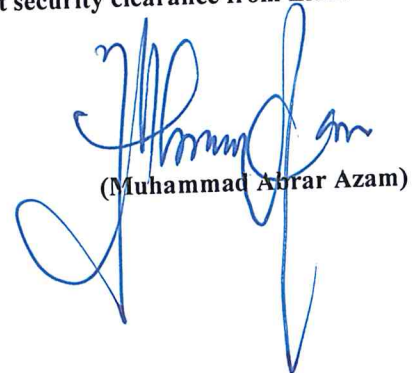 t security clearance from
(Muhammad Abrar Azam)